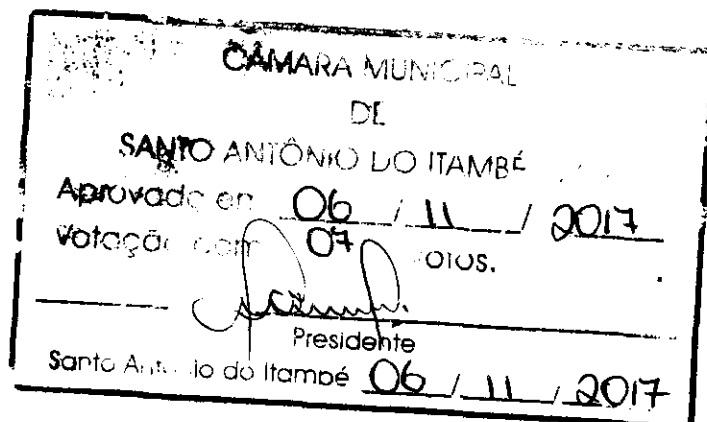 CÂMARA MUNICIPAL
DE
SANTO ANTÔNIO DO ITAMBÉ
Aprovado em 06 / 11 / 2017
Votação com 07 votos.
Presidente
Santo Antonio do Itambé 06 / 11 / 2017